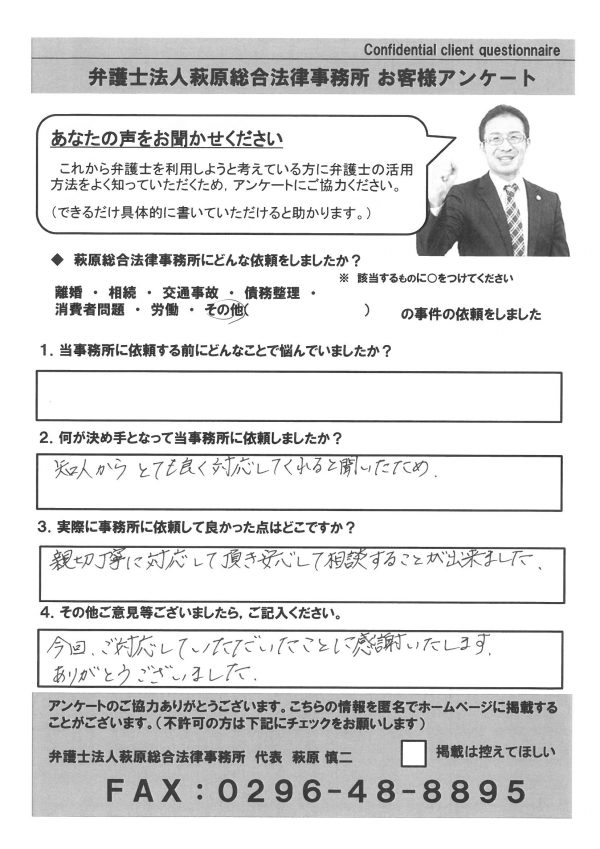 Confidential client questionnaire
弁護士法人萩原総合法律事務所 お客様アンケート
あなたの声をお聞かせください
これから弁護士を利用しようと考えている方に弁護士の活用
方法をよく知っていただくため，アンケートにご協力ください。
（できるだけ具体的に書いていただけると助かります。）
◆ 萩原総合法律事務所にどんな依頼をしましたか？
※ 該当するものに○をつけてください
離婚 ・ 相続 ・ 交通事故 ・ 債務整理 ・
消費者問題 ・ 労働 ・ その他( ) の事件の依頼をしました
1．当事務所に依頼する前にどんなことで悩んでいましたか？
2．何が決め手となって当事務所に依頼しましたか？
知人から とても良く対応してくれると聞いたため．
3．実際に事務所に依頼して良かった点はどこですか？
親切丁寧に対応して頂き安心して相談することが出来ました．
4．その他ご意見等ございましたら，ご記入ください。
今回、ご対応していただいたことに感謝いたします．
ありがとうございました．
アンケートのご協力ありがとうございます。こちらの情報を匿名でホームページに掲載する
ことがございます。（不許可の方は下記にチェックをお願いします）
弁護士法人萩原総合法律事務所 代表 萩原 慎二
掲載は控えてほしい
FAX：0296-48-8895